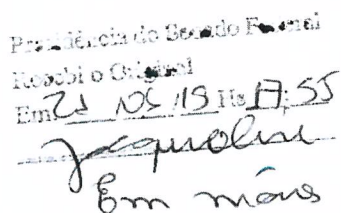 Presidência do Senado Federal
Recebi o Original
Em 21/05/19 Hs 17:55
Jacqueline
Em mãos